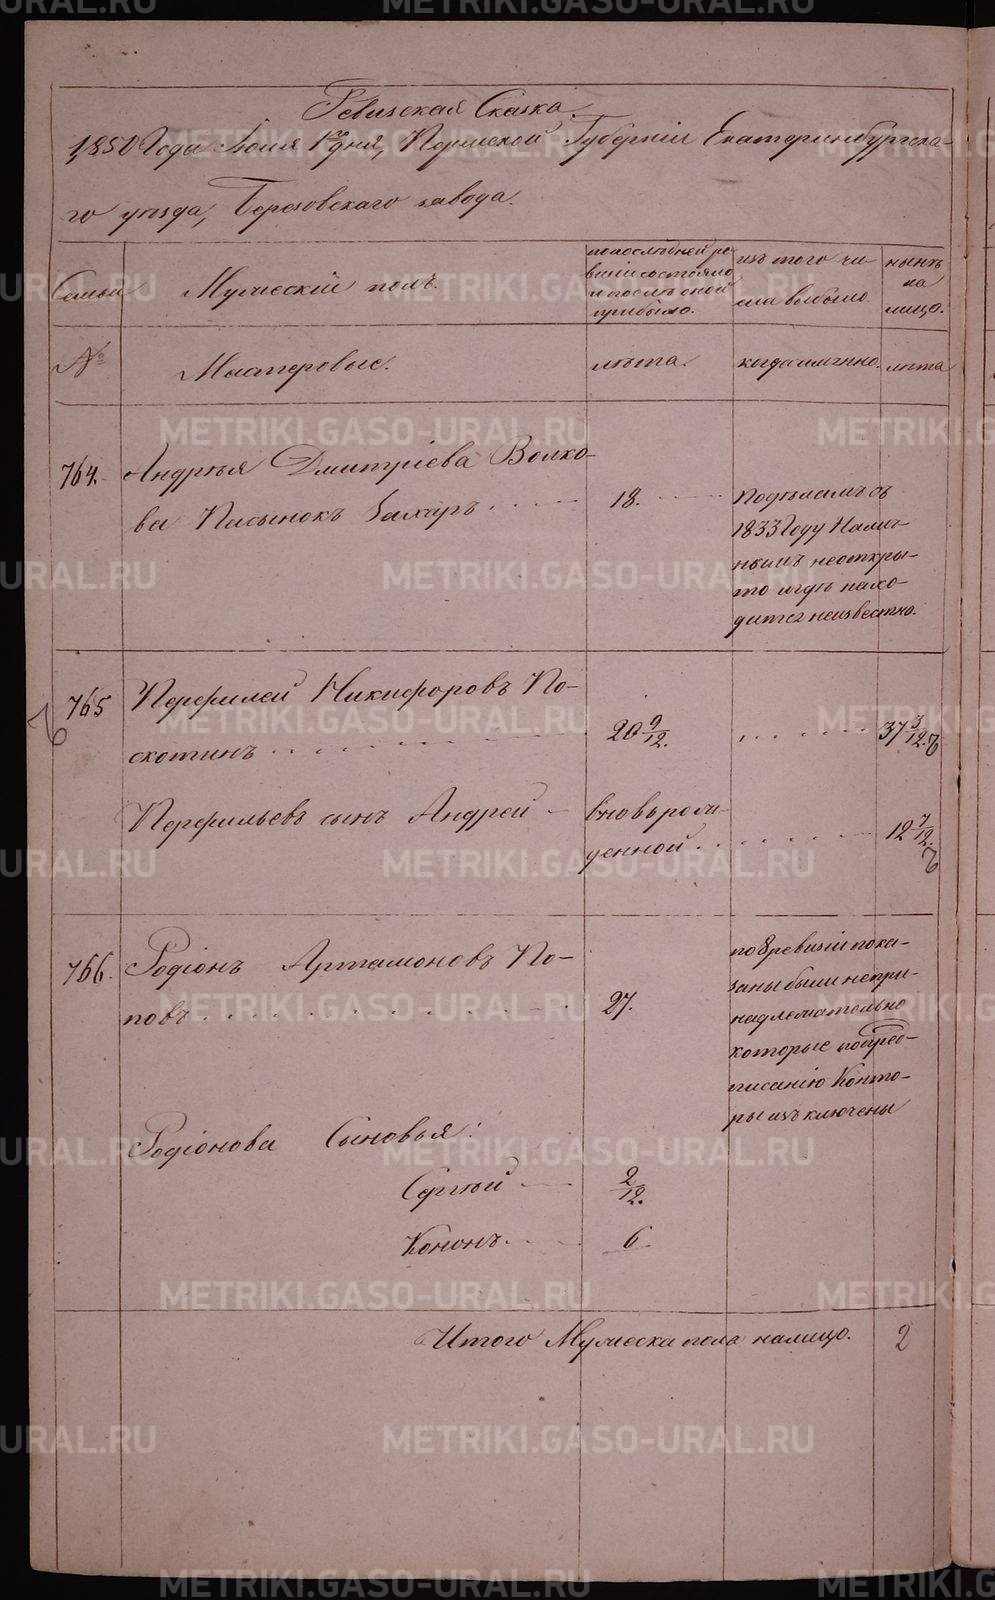 Ревизская Сказка.
1850 Года Июля дня, Пермской Губерніи Екатеринбургска-
го уѣзда, Березовскаго завода.
Семьи
Мужескій полъ.
по послѣдней ре-
визіи состояло
и послѣ оной
прибыло.
изъ того чи-
сла выбыло
нынѣ
на
лицо.
№
Мастеровые.
лѣта.
когда именно.
лѣта
764.
Андрѣя Дмитріева Волко-
ва Пасынокъ Захаръ
18.
Подѣламъ съ
1833 Году Налич-
нымъ неоткры-
то игдѣ нахо-
дится неизвестно.
765
Перфилей Никифоровъ По-
скотинъ
20 9/12.
37 3/12.
Перфильевъ сынъ Андрей
вновьрож-
денной
12 7/12.
766.
Родіонъ Артамоновъ По-
повъ
27.
по 8 ревизіи пока-
заны были непри-
надлежательно
которые попред-
писанію Конто-
ры изъключены
Родіонова Сыновья:
Сергѣй
2/12.
Кононъ
6
Итого Мужеска пола налицо.
2
METRIKI.GASO-URAL.RU